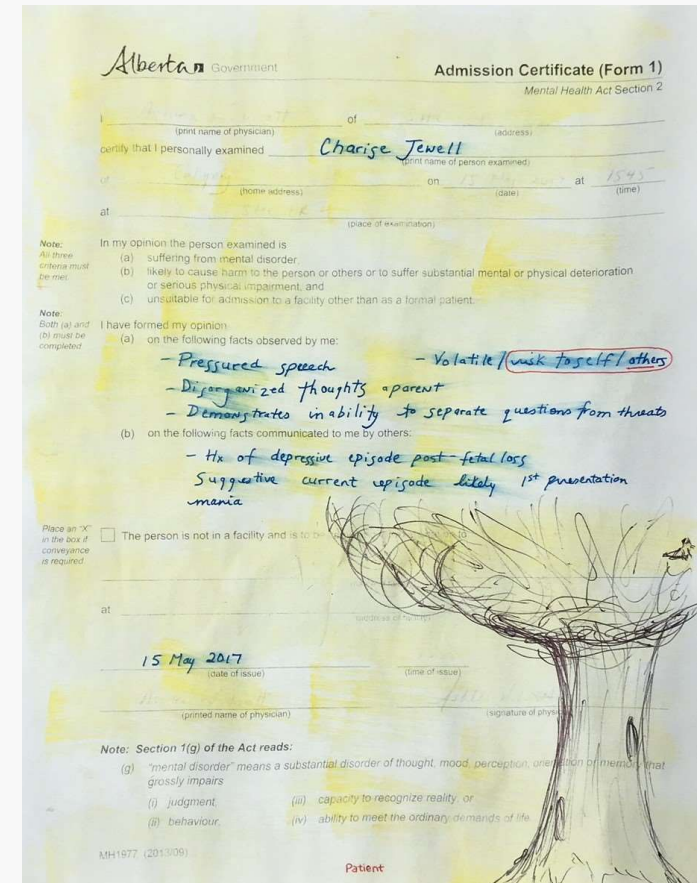 Alberta Government
Admission Certificate (Form 1)
Mental Health Act Section 2
I of
(print name of physician) (address)
certify that I personally examined Charise Jewell
(print name of person examined)
of on 15 May 2017 at 1545
(home address) (date) (time)
at
(place of examination)
Note:
All three
criteria must
be met.
In my opinion the person examined is
(a) suffering from mental disorder,
(b) likely to cause harm to the person or others or to suffer substantial mental or physical deterioration
or serious physical impairment, and
(c) unsuitable for admission to a facility other than as a formal patient.
Note:
Both (a) and
(b) must be
completed
I have formed my opinion
(a) on the following facts observed by me:
- Pressured speech - Volatile / risk to self / others
- Disorganized thoughts aparent
- Demonstrates inability to separate questions from threats
(b) on the following facts communicated to me by others:
- Hx of depressive episode post-fetal loss
Suggestive current episode likely 1st presentation
mania
Place an "X"
in the box if
conveyance
is required
The person is not in a facility and is to be to
at
(address of facility)
15 May 2017
(date of issue) (time of issue)
(printed name of physician) (signature of phys
Note: Section 1(g) of the Act reads:
(g) "mental disorder" means a substantial disorder of thought, mood, perception, orientation or memory that
grossly impairs
(i) judgment, (iii) capacity to recognize reality, or
(ii) behaviour, (iv) ability to meet the ordinary demands of life.
MH1977 (2013/09)
Patient